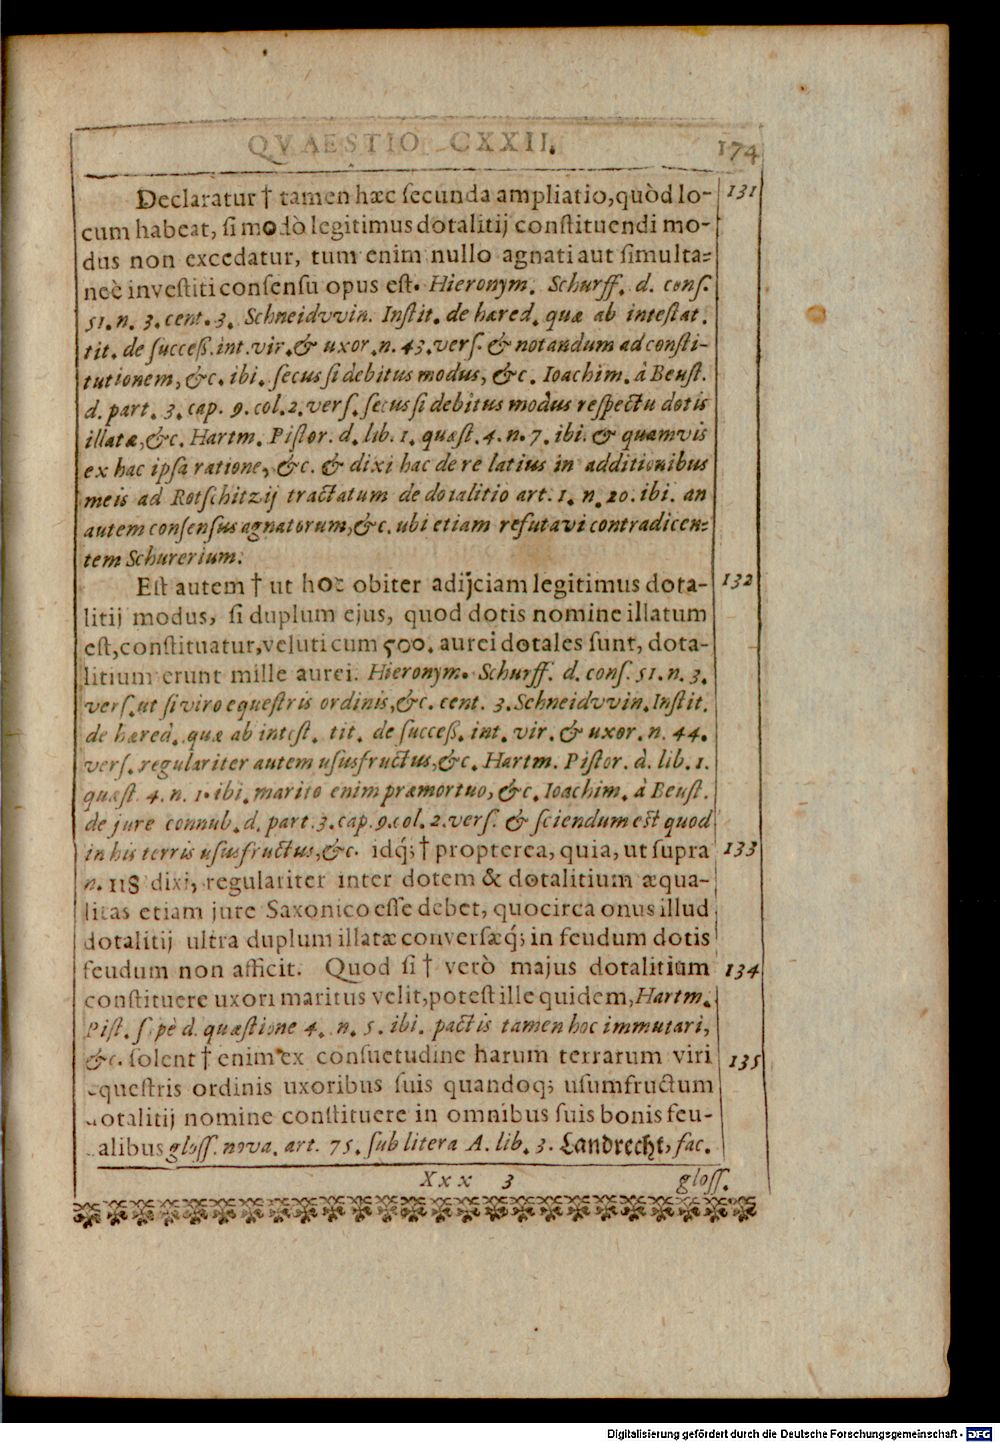 QVAESTIO CXXII. 174
Declaratur † tamen hæc ſecunda ampliatio, quòd lo- 131
cum habeat, ſi modò legitimus dotalitij conſtituendi mo-
dus non excedatur, tum enim nullo agnati aut ſimulta-
neè inveſtiti conſenſu opus eſt. Hieronym. Schurff. d. conſ.
51. n. 3. cent. 3. Schneidvvin. Inſtit. de hæred. quæ ab inteſtat.
tit. de ſucceß. int. vir. & uxor. n. 43. verſ. & notandum ad conſti-
tutionem, &c. ibi. ſecus ſi debitus modus, &c. Ioachim. à Beuſt.
d. part. 3. cap. 9. col. 2. verſ. ſecus ſi debitus modus reſpectu dotis
illatæ, &c. Hartm. Piſtor. d. lib. 1. quæſt. 4. n. 7. ibi. & quamvis
ex hac ipſa ratione, &c. & dixi hac de re latius in additionibus
meis ad Rotſchitzij tractatum de dotalitio art. 1. n. 20. ibi. an
autem conſenſus agnatorum, &c. ubi etiam refutavi contradicen-
tem Schurerium.
Eſt autem † ut hoc obiter adijciam legitimus dota- 132
litij modus, ſi duplum ejus, quod dotis nomine illatum
eſt, conſtituatur, veluti cum 500. aurei dotales ſunt, dota-
litium erunt mille aurei. Hieronym. Schurff. d. conſ. 51. n. 3.
verſ. ut ſi viro equeſtris ordinis, &c. cent. 3. Schneidvvin. Inſtit.
de hæred. quæ ab inteſt. tit. de ſucceß. int. vir. & uxor. n. 44.
verſ. regulariter autem uſusfructus, &c. Hartm. Piſtor. d. lib. 1.
quæſt. 4. n. 1. ibi. marito enim præmortuo, &c. Ioachim. à Beuſt.
de jure connub. d. part. 3. cap. 9. col. 2. verſ. & ſciendum eſt quod
in his terris uſusfructus, &c. idq́; † propterea, quia, ut ſupra 133
n. 118 dixi, regulariter inter dotem & dotalitium æqua-
litas etiam jure Saxonico eſſe debet, quocirca onus illud
dotalitij ultra duplum illatæ converſæq́; in feudum dotis
feudum non afficit. Quod ſi † verò majus dotalitium 134
conſtituere uxori maritus velit, poteſt ille quidem, Hartm.
Piſt. ſæpè d. quæſtione 4. n. 5. ibi. pactis tamen hoc immutari,
&c. ſolent † enim ex conſuetudine harum terrarum viri 135
equeſtris ordinis uxoribus ſuis quandoq; uſumfructum
dotalitij nomine conſtituere in omnibus ſuis bonis feu-
dalibus gloſſ. nova. art. 75. ſub litera A. lib. 3. Landrecht, fac.
Xxx 3 gloſſ.
Digitalisierung gefördert durch die Deutsche Forschungsgemeinschaft - DFG